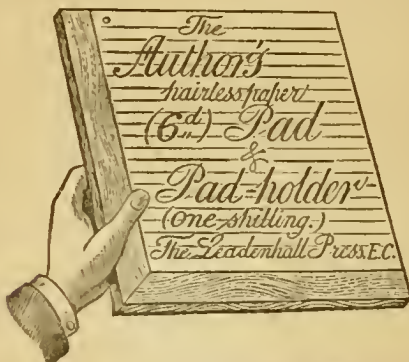 The
Author's
hairless paper
(6d) Pad
&
Pad-holder
(One shilling.)
The Leadenhall Press, E.C.